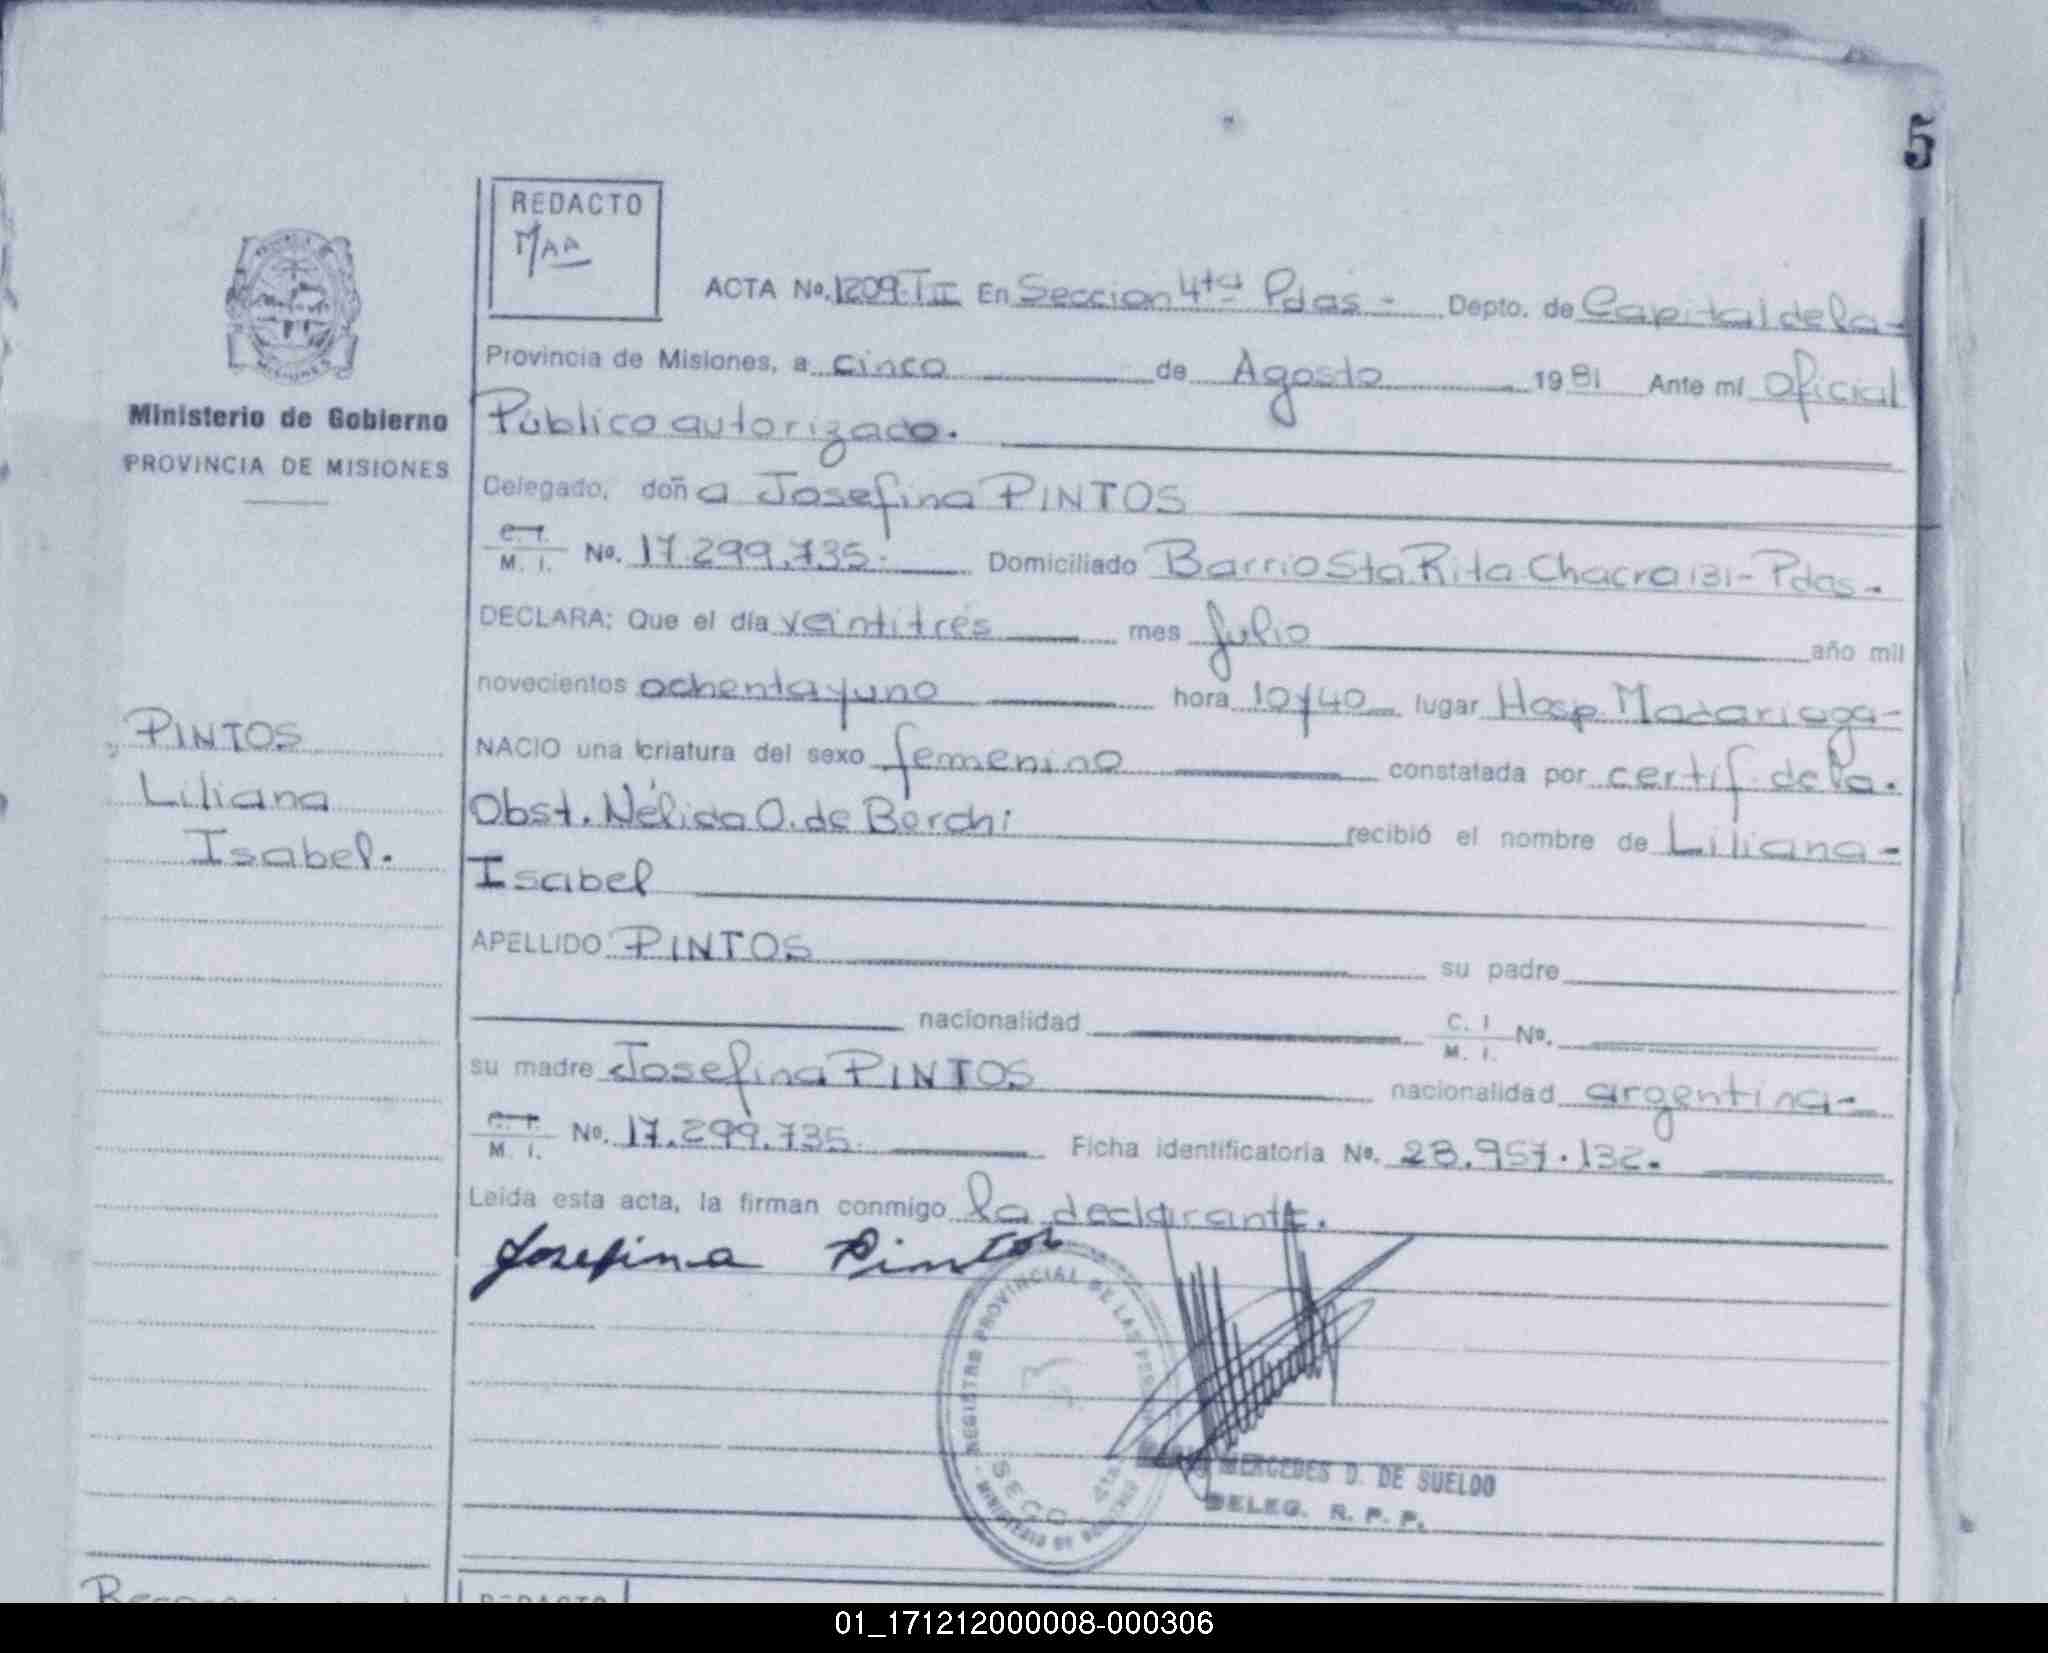 5
REDACTO
MAA
ACTA No. 1209-TII En Sección 4ta Pdas - Depto. de Capital de la-
Provincia de Misiones, a cinco de Agosto 1981 Ante mí Oficial
Público autorizado.
Delegado, doña Josefina PINTOS
M. I. No. 17.299.735.- Domiciliado Barrio Sta Rita Chacra 131- Pdas-
DECLARA: Que el día veintitrés mes Julio año mil
novecientos ochenta y uno hora 10 y 40 lugar Hosp Madariaga-
NACIO una criatura del sexo femenino constatada por certif. de la.
Obst. Nélida O. de Berchi recibió el nombre de Liliana-
Isabel
APELLIDO PINTOS su padre
nacionalidad C. I M. I. No.
su madre Josefina PINTOS nacionalidad argentina-
M. I. No. 17.299.735. Ficha identificatoria No. 28.957.132.
Leída esta acta, la firman conmigo la declarante.
Josefina Pintos
REGISTRO PROVINCIAL DE LAS
SECC. 4ta
MINISTERIO DE GOBIERNO
MERCEDES D. DE SUELDO
DELEG. R. P. P.
Ministerio de Gobierno
PROVINCIA DE MISIONES
PINTOS
Liliana
Isabel.
REDACTO
01_171212000008-000306